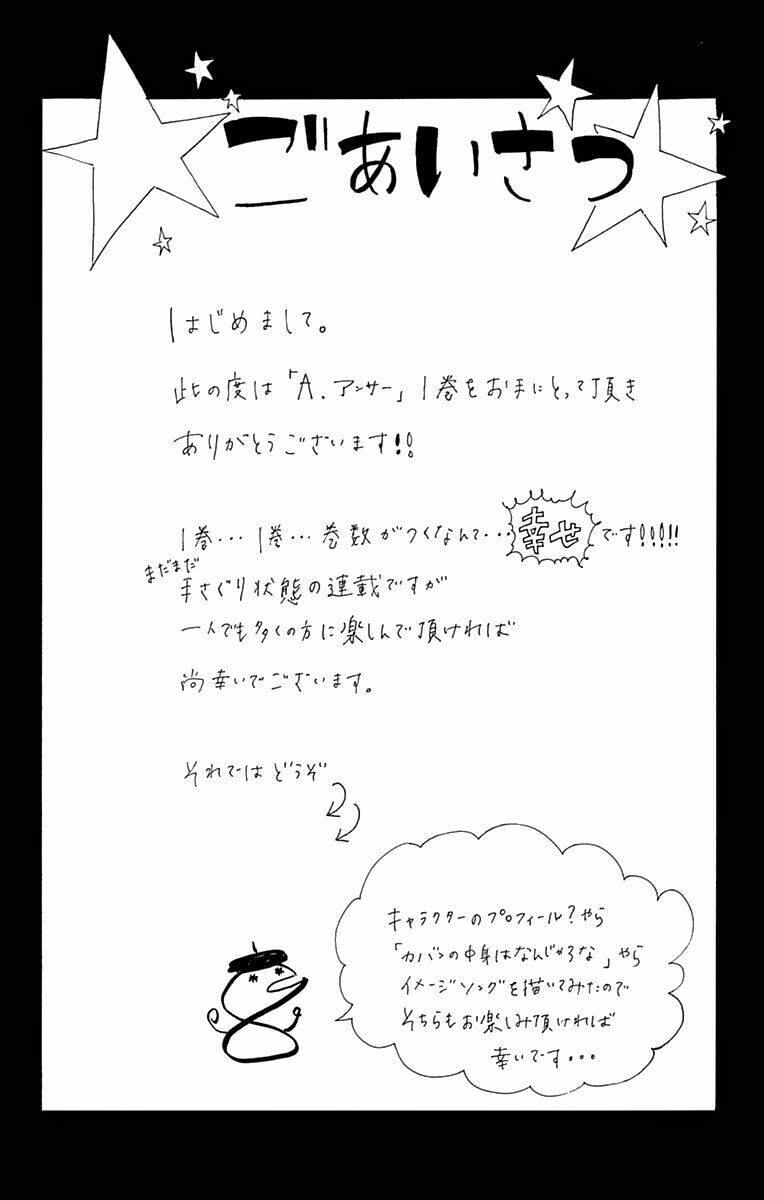 ごあいさつ
はじめまして。
此の度は「A.アンサー」1巻をお手にとって頂き
ありがとうございます!!
1巻…1巻…巻数がつくなんて…幸せです!!!!!
まだまだ
手さぐり状態の連載ですが
一人でも多くの方に楽しんで頂ければ
尚幸いでございます。
それではどうぞ
キャラクターのプロフィール?やら
「カバンの中身はなんじゃろな」やら
イメージソングを描いてみたので
そちらもお楽しみ頂ければ
幸いです...